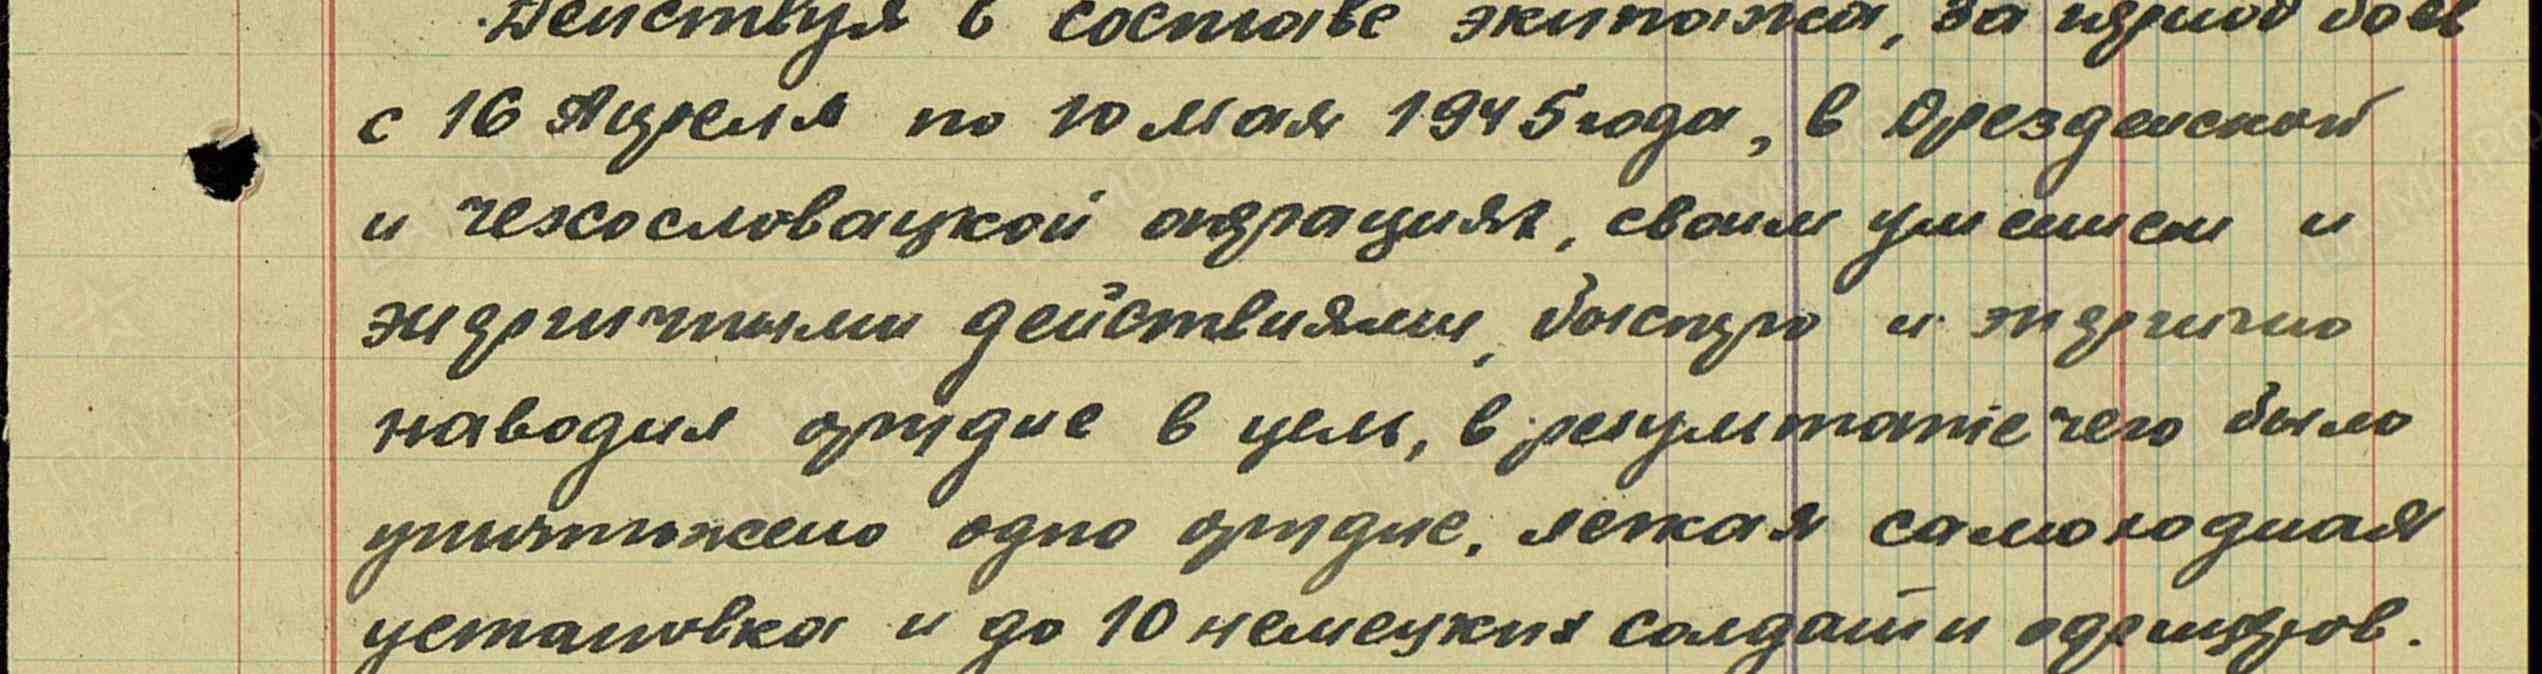 Действуя в составе экипажа, за период боев
с 16 Апреля по 10 мая 1945 года, в Дрезденской
и чехословацкой операциях, своим умением и
энергичными действиями, быстро и энергично
наводил орудие в цель, в результате чего было
уничтожено одно орудие, легкая самоходная
установка и до 10 немецких солдат и офицеров.